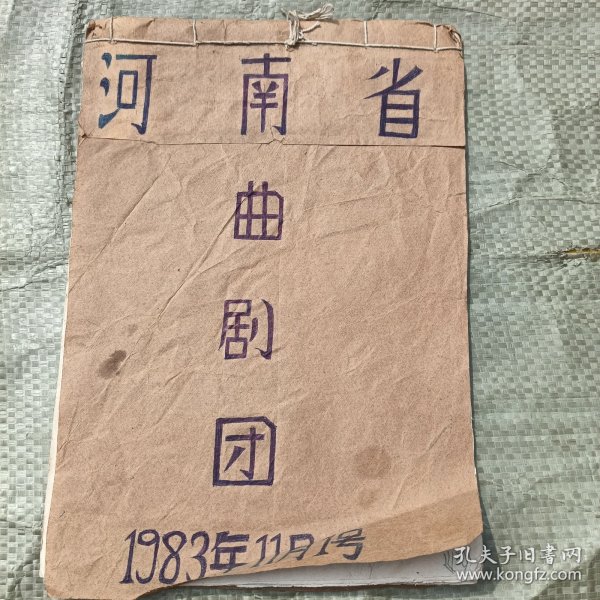 河南省
曲
剧
团
1983年11月1号
孔夫子旧书网
www.kongfz.com